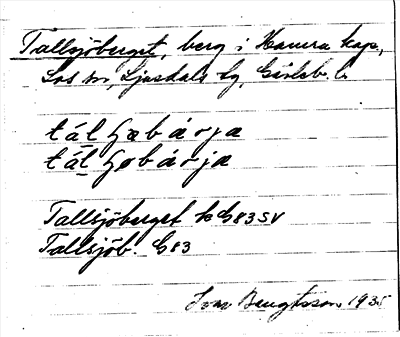 Tallsjöberget, berg i Hamra kap.,
Los sn, Ljusdals tg, Gävleb. l.
tálʃæbárja
tálʃøbárja
Tallsjöberget k G83SV
Tallsjöb. G83
Bengtsson 1935